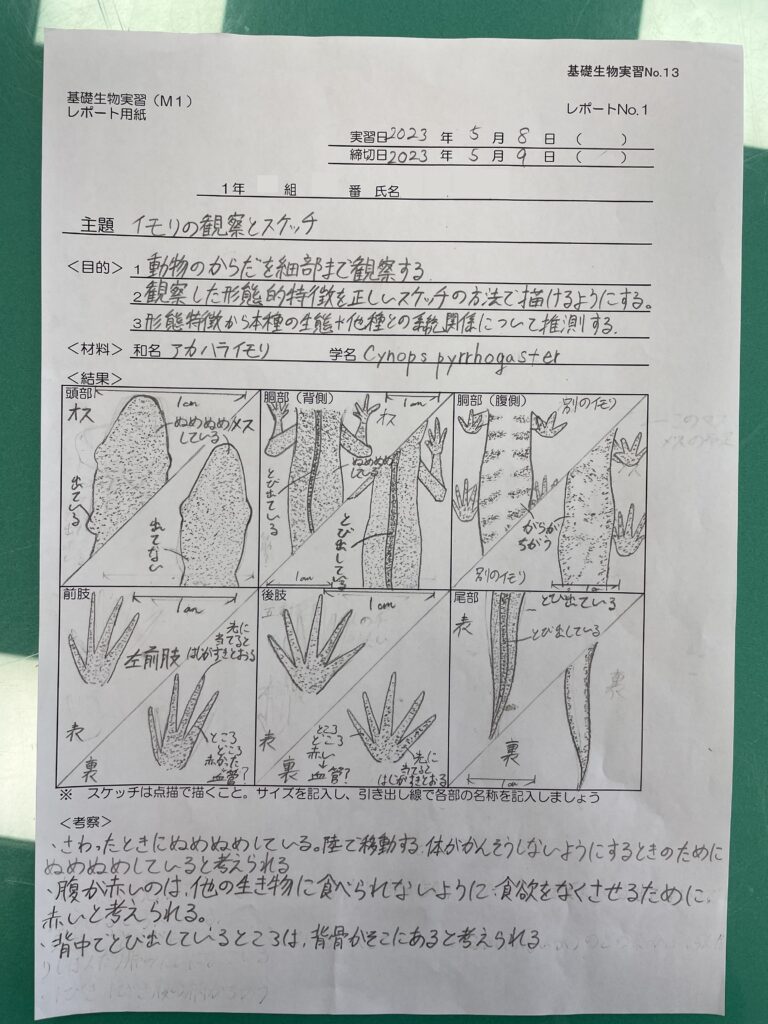 基礎生物実習No.13
基礎生物実習（M１）
レポート用紙
レポートNo.1
実習日2023 年 5 月 8 日 （ ）
締切日2023 年 5 月 9 日 （ ）
1年 組 番 氏名
主題 イモリの観察とスケッチ
＜目的＞ 1 動物のからだを細部まで観察する.
2 観察した形態的特徴を正しいスケッチの方法で描けるようにする。
3 形態特徴から本種の生態や他種との系統関係について推測する.
＜材料＞ 和名 アカハライモリ 学名 Cynops pyrrhogaster
＜結果＞
頭部
オス
1cm
ぬめぬめ
している
メス
出ている
出てない
胴部（背側）
オス
1cm
ぬめぬめ
している
とび出ている
とび出している
1cm
胴部（腹側）
別のイモリ
がらが
ちがう
別のイモリ
1cm
前肢
1cm
左前肢
光に
当てると
はじがすきとおる
表
裏
ところ
どころ
赤かった
血管？
後肢
1cm
表
裏
ところ
どころ
赤い
↓
血管？
光に
当てると
はじがすきとおる
尾部
表
とび出ている
とび出している
裏
1cm
※ スケッチは点描で描くこと。サイズを記入し、引き出し線で各部の名称を記入しましょう
＜考察＞
・さわったときにぬめぬめしている。陸で移動する.体がかんそうしないようにするときのために
ぬめぬめしていると考えられる
・腹が赤いのは、他の生き物に食べられないように、食欲をなくさせるために、
赤いと考えられる。
・背中でとび出しているところは、背骨がそこにあると考えられる